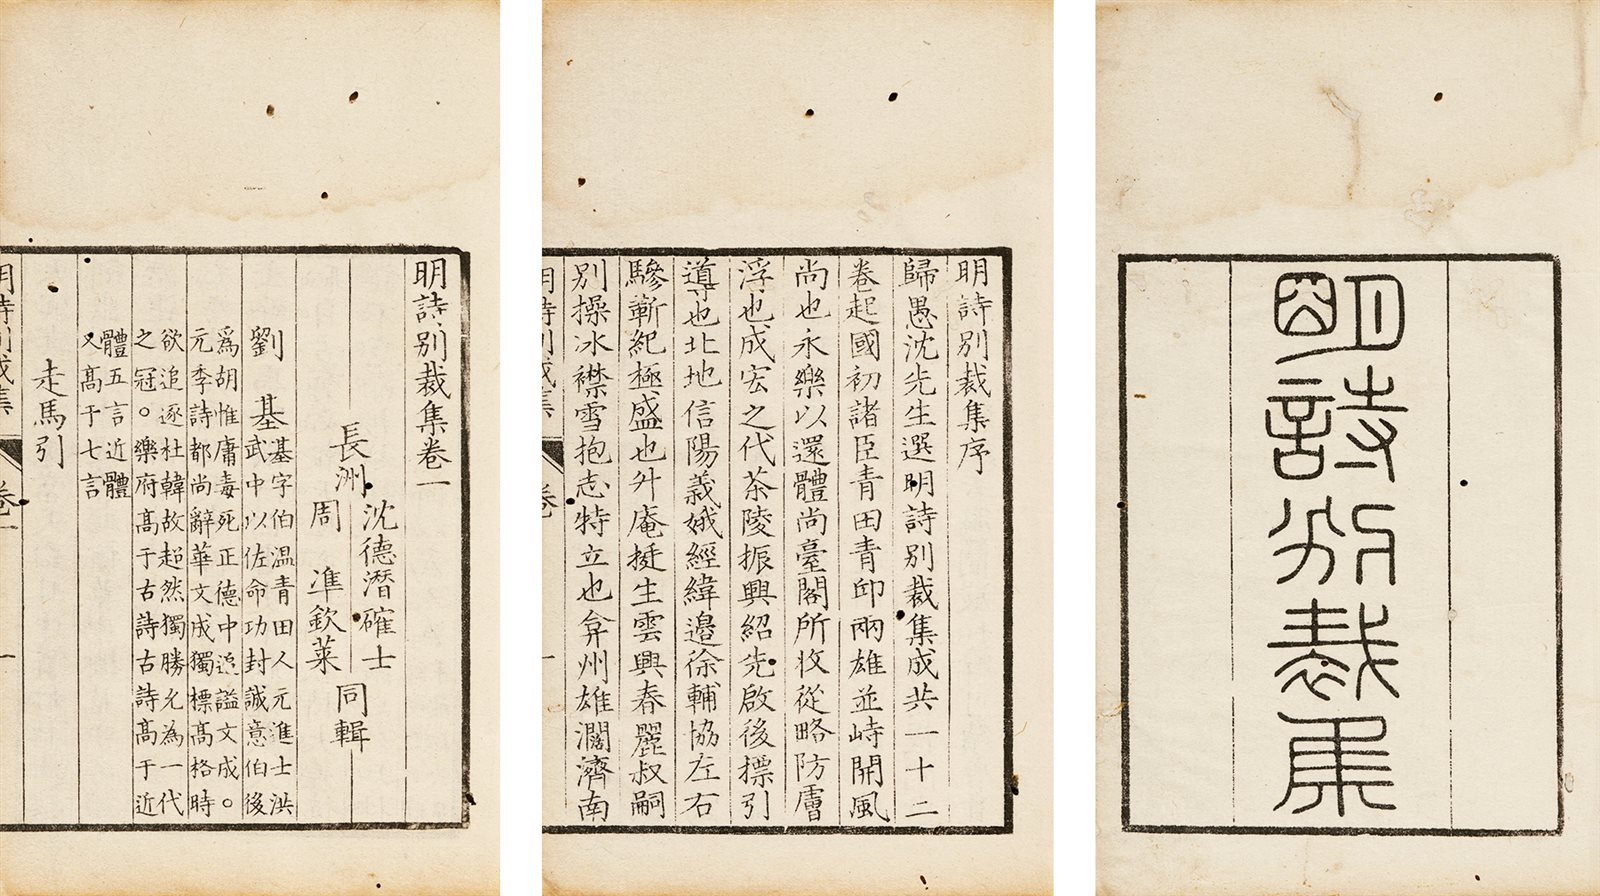 明詩別裁集
明詩別裁集序
歸愚沈先生選明詩別裁集成共一十二
卷起國初諸臣青田青邱兩雄並峙開風
尚也永樂以還體尚臺閣所收從略防膚
浮也成宏之代茶陵振興紹先啟後標引
導也北地信陽義娥經緯邉徐輔協左右
驂靳紀極盛也升庵挺生雲興春麗叔嗣
別操冰襟雪抱志特立也弇州雄濶濟南
明詩別裁集
卷一
明詩別裁集卷一
長洲
沈德潛確士
周準欽萊
同輯
劉基
基字伯温青田人元進士洪
武中以佐命功封誠意伯後
爲胡惟庸毒死正德中追謚文成。
元季詩都尚辭華文成獨標高格時
欲追逐杜韓故超然獨勝允為一代
之冠。樂府高于古詩古詩高于近
體五言近體
又高于七言
走馬引
明詩別裁集
卷一
一